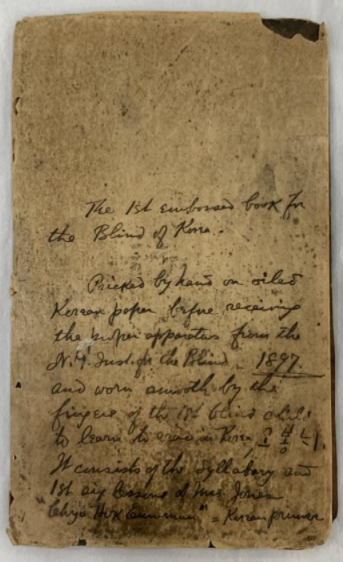 The 1st embossed book for
the Blind of Korea.
Pricked by hand on oiled
Korean paper before receiving
the proper apparatus from the
N.Y. Inst. for the Blind. 1897.
and worn smooth by the
fingers of the 1st blind child
to learn to read in Korea
It consists of the syllabary and
1st six lessons of Mrs. Jones
= Korean primer